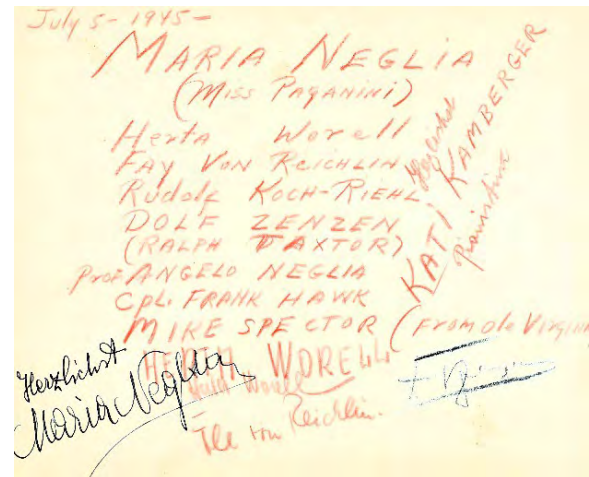 July 5 - 1945 -
MARIA NEGLIA
(MISS PAGANINI)
Herta Worell
FAY VON REICHLIN
Rudolf KOCH-RIEHL
DOLF ZENZEN
(RALPH DAXTOR)
Prof. ANGELO NEGLIA
Cpl. FRANK HAWK
MIKE SPECTOR (FROM Ole VIRGIN
Herzlichst
KATI KAMBERGER
Pianistin
HERTA WORELL
Herta Worell
von Reichlin.
Herzlichst
Maria Neglia